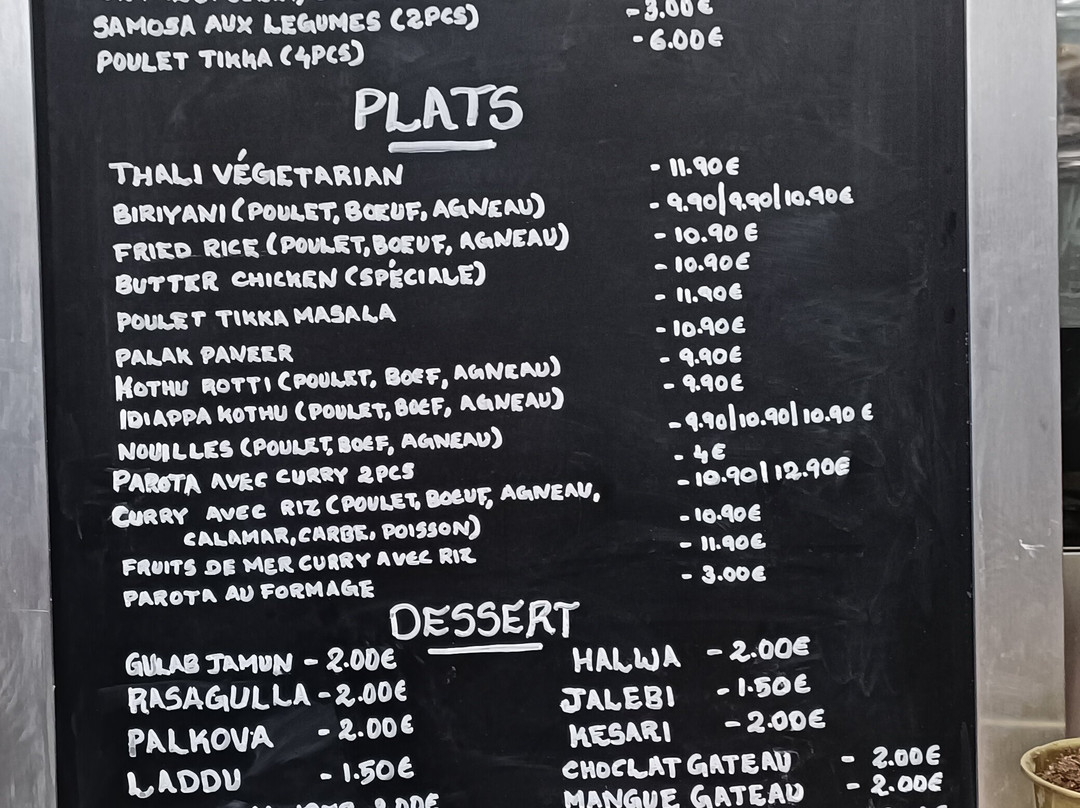 SAMOSA AUX LEGUMES (2PCS) - 3.00€
POULET TIKKA (4PCS) - 6.00€
PLATS
THALI VÉGETARIAN - 11.90€
BIRIYANI (POULET, BŒUF, AGNEAU) - 9.90/9.90/10.90€
FRIED RICE (POULET, BOEUF, AGNEAU) - 10.90€
BUTTER CHICKEN (SPÉCIALE) - 10.90€
- 11.90€
POULET TIKKA MASALA - 10.90€
PALAK PANEER - 9.90€
KOTHU ROTTI (POULET, BOEF, AGNEAU) - 9.90€
IDIAPPA KOTHU (POULET, BOEF, AGNEAU) - 9.90/10.90/10.90€
NOUILLES (POULET, BOEF, AGNEAU) - 4€
PAROTA AVEC CURRY 2PCS - 10.90/12.90€
CURRY AVEC RIZ (POULET, BOEUF, AGNEAU,
CALAMAR, CARBE, POISSON) - 10.90€
FRUITS DE MER CURRY AVEC RIZ - 11.90€
PAROTA AU FORMAGE - 3.00€
DESSERT
GULAB JAMUN - 2.00€ HALWA - 2.00€
RASAGULLA - 2.00€ JALEBI - 1.50€
PALKOVA - 2.00€ KESARI - 2.00€
LADDU - 1.50€ CHOCLAT GATEAU - 2.00€
MANGUE GATEAU - 2.00€